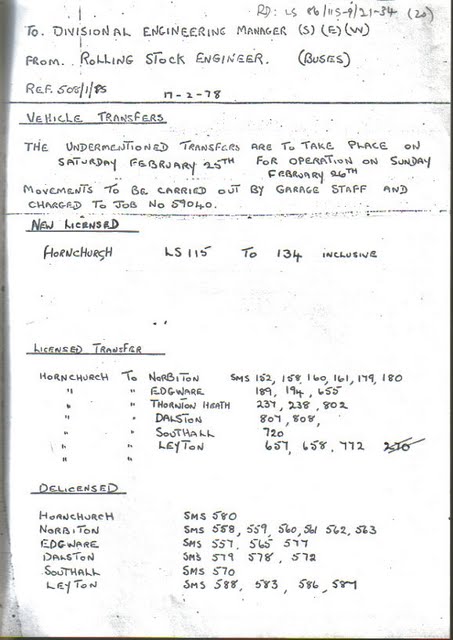 RD: LS 86/115-9/21-34 (20)
TO. DIVISIONAL ENGINEERING MANAGER (S) (E) (W)
FROM. ROLLING STOCK ENGINEER. (BUSES)
REF. 508/1/85 17-2-78
VEHICLE TRANSFERS
THE UNDERMENTIONED TRANSFERS ARE TO TAKE PLACE ON
SATURDAY FEBRUARY 25TH FOR OPERATION ON SUNDAY
FEBRUARY 26TH
MOVEMENTS TO BE CARRIED OUT BY GARAGE STAFF AND
CHARGED TO JOB NO 59040.
NEW LICENSED
HORNCHURCH LS 115 TO 134 INCLUSIVE
LICENSED TRANSFER
HORNCHURCH TO NORBITON SMS 152, 158, 160, 161, 179, 180
" " EDGWARE 189, 194, 655
" " THORNTON HEATH 237, 238, 802
" " DALSTON 807, 808,
" " SOUTHALL 720
" " LEYTON 657, 658, 772
" "
DELICENSED
HORNCHURCH SMS 580
NORBITON SMS 558, 559, 560, 561 562, 563
EDGWARE SMS 557, 565 577
DALSTON SMS 579 578, 572
SOUTHALL SMS 570
LEYTON SMS 588, 583, 586, 587